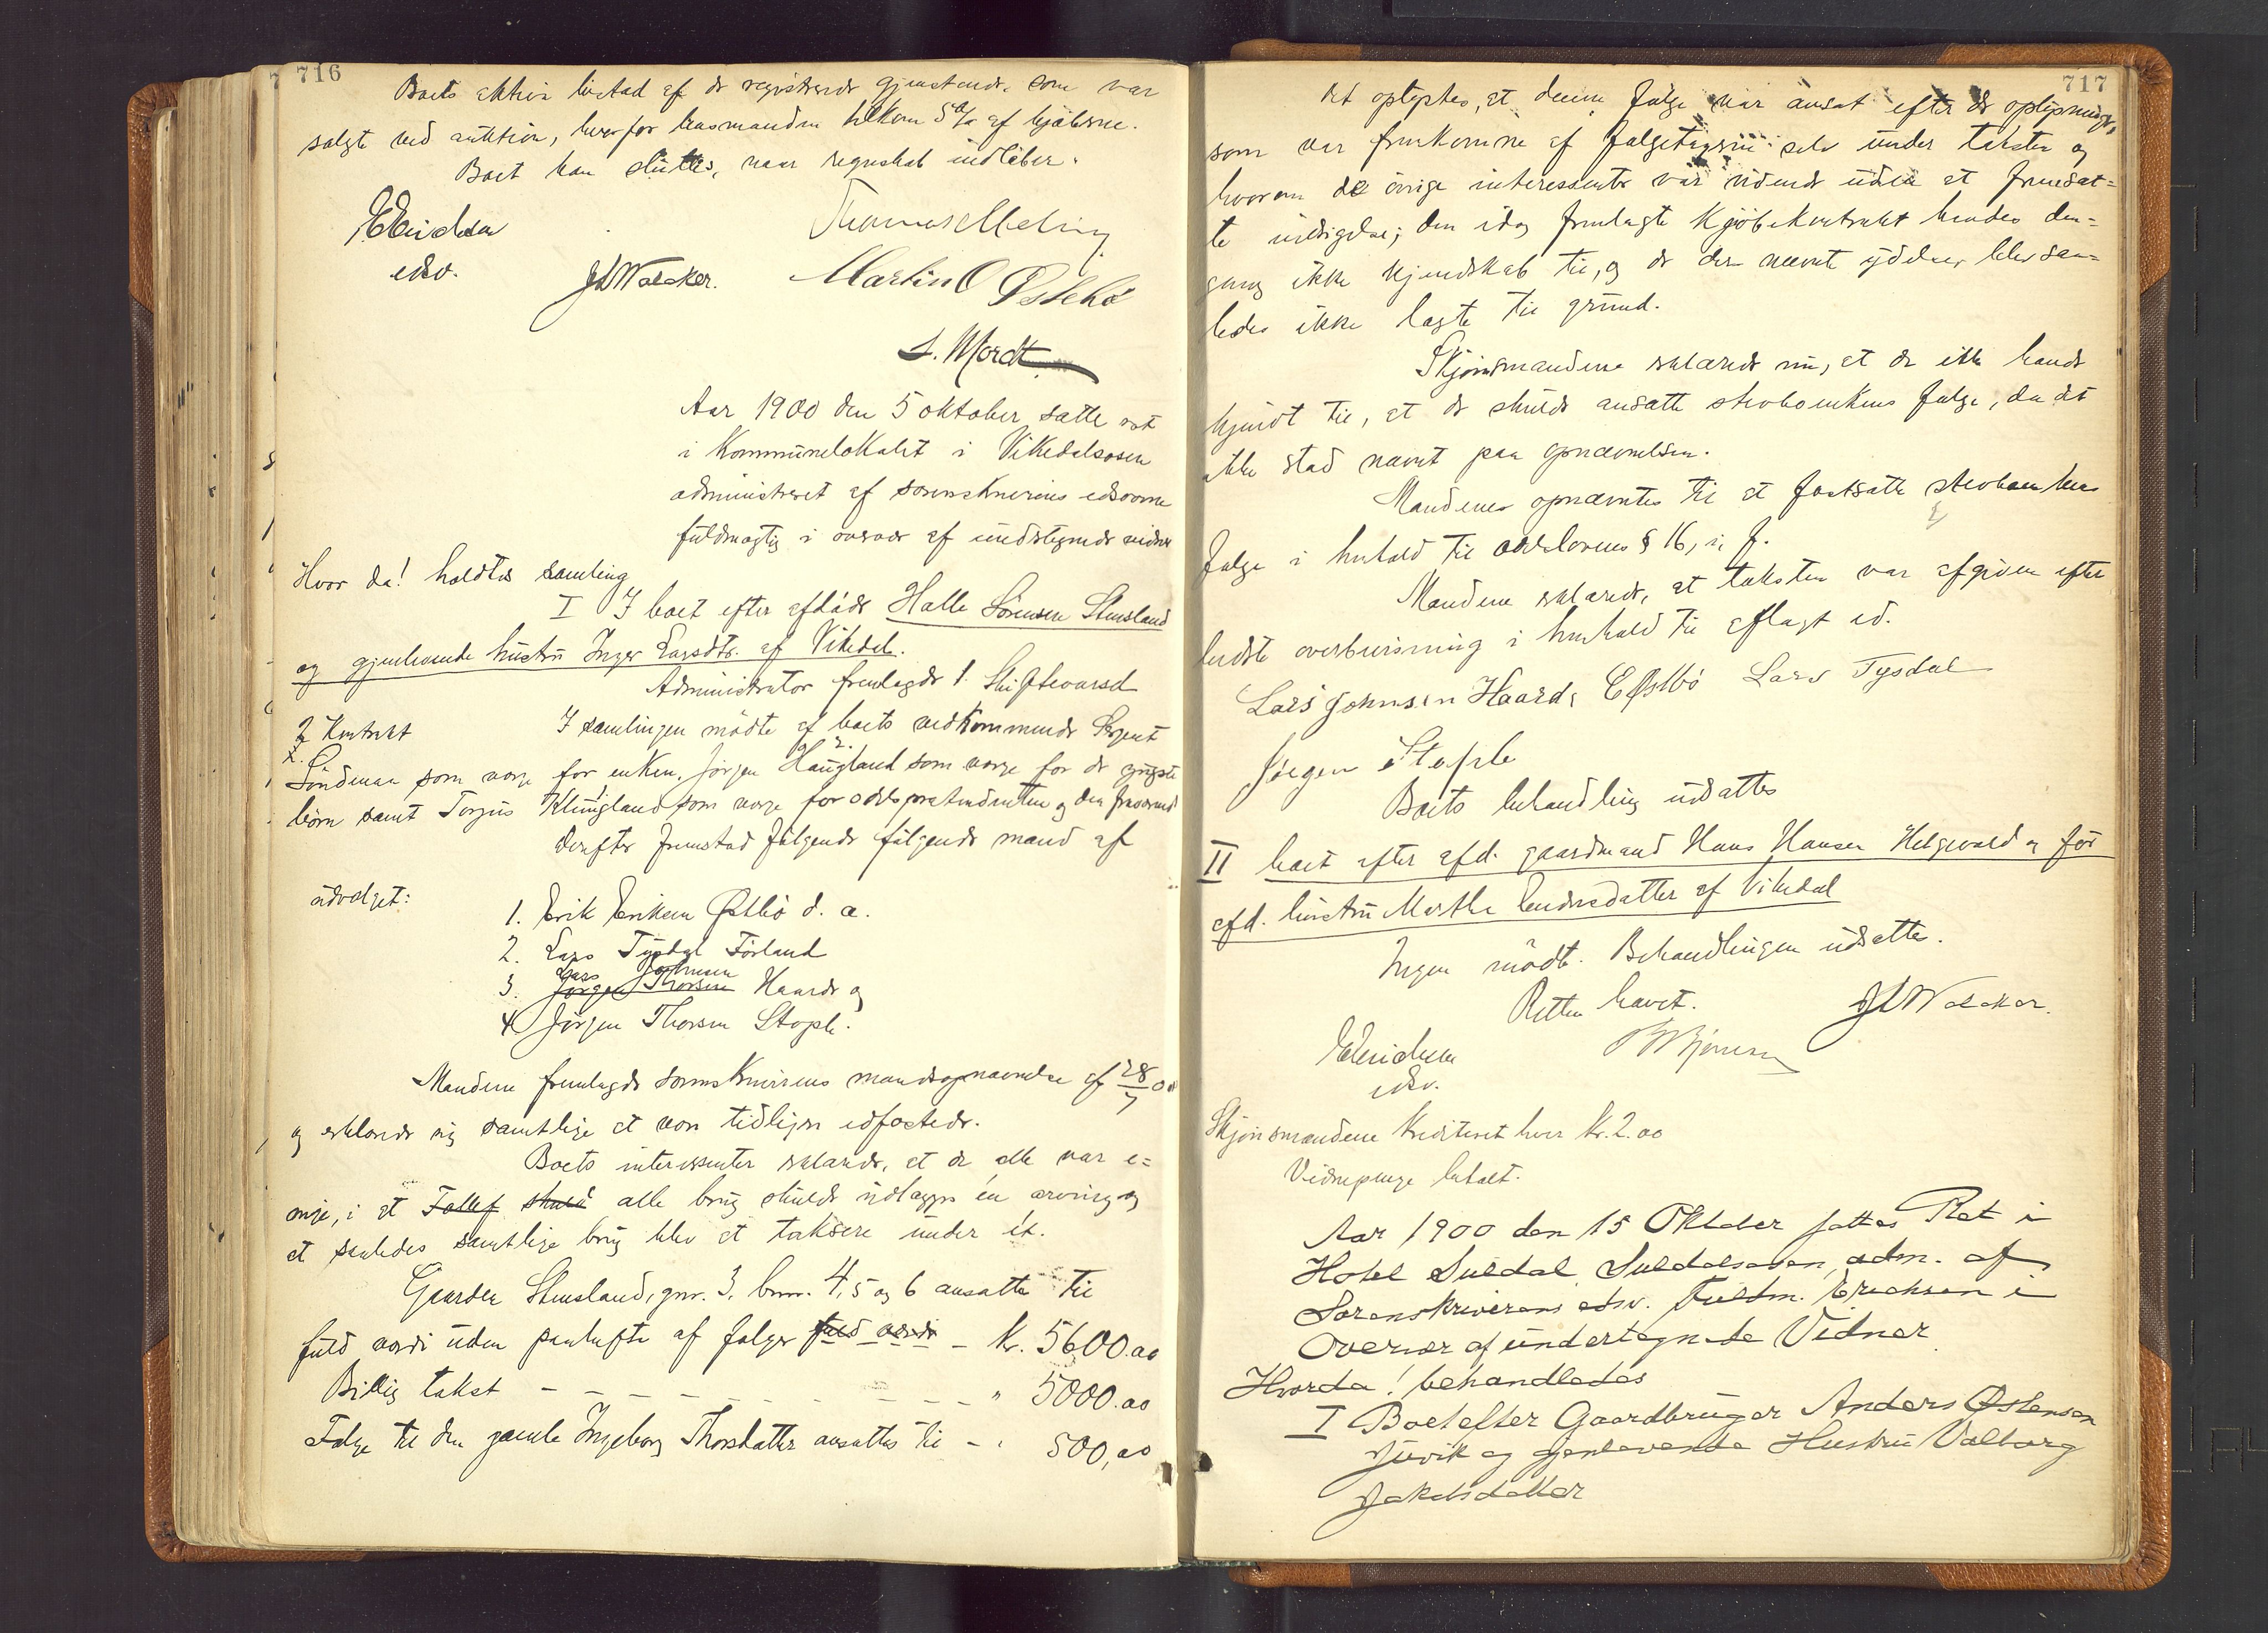 716
Boets aktiva bestod af de registrerede gjenstande, som var
solgt ved auktion, hvorfor lensmanden tilkom 5 % af kjøberne.
Boet kan sluttes, naar regnskab indløber.
Erichsen
edsv.
JLWalcker.
Thomas Meling
Martin O Østebø
S. Mordt
Aar 1900 den 5 oktober sattes ret
i Kommunelokalet i Vikedalsosen
administreret af sorenskriverens edsvorne
fuldmægtig i overvær af undertegnede vidner
Hvor da! holdtes samling
I I boet efter afdøde Halle Sørensen Stensland
og gjenlevende hustru Inger Larsdtr. af Vikedal.
Administrator fremlagde 1. Skiftevarsel
2 Kontrakt
I samlingen mødte af boets vedkommende Sergeant
Søndenaa som verge for enken, Jørgen Haugland som verge for de yngste
børn samt Torgius Klungland som verge for odelsprætendenten og den fraværende
Derefter fremstod følgende følgende mænd af
udvalget:
1. Erik Eriksen Østbø d. æ.
2. Lars Tysdal Førland
Lars Johnsen
3. Jørgen Thorsen Haarde og
4 Jørgen Thorsen Stople.
Mændene fremlagde sorenskriverens mandsopnævnelse af 28/7 00
og erklærede sig samtlige at være tidligere edfæstede.
Boets interessenter erklærede, at de alle var e=
nige, i at Follef skuld alle brug skulde udlægges én arving og
at saaledes samtlige brug blev at taksere under ét.
Gaarden Stensland, gnr. 3, brnr. 4, 5 og 6 ansattes til
fuld værdi uden paahefte af folger fuld værdi - kr. 5600.00
Billig takst - - - - - - - - - " 5000.00
Folge til den gamle Ingeborg Thorsdatter ansattes til - " 500,00
717
Det oplystes, at denne folge var ansat efter de oplysninger,
som var fremkomne af folgetagersken selv under taksten og
hvorom de øvrige interessenter var vidende uden at fremsat=
te indsigelse; den idag fremlagte Kjøbekontrakt havdes den=
gang ikke kjendskab til, og de der nævnte ydelser blev saa=
ledes ikke lagte til grund.
Skjønsmændene erklærede nu, at de ikke havde
kjendt til, at de skulde ansætte sterboenkens folge, da det
ikke stod nævnt paa opnævnelsen.
Mændenes opnævntes til at fastsætte sterboenkens
folge i henhold til odelslovens § 16, i. f.
Mændene erklærede, at taksten var afgiven efter
bedste overbevisning i henhold til aflagt ed.
Lars Johnsen Haarde EØstbø Lars Tysdal
Jørgen Stople
Boets behandling udsattes
II boet efter afd. gaardmand Hans Hansen Helgevold og før
afd. hustru Marthe Endresdatter af Vikedal
Ingen mødt. Behandlingen udsattes.
Retten hævet.
JLWalcker.
Erichsen
edsv.
Skjønsmændene krediteret hver kr. 2.00
Vidnepenge betalt.
Aar 1900 den 15 Oktober sattes Ret i
Hotel Suldal, Suldalsosen, adm. af
Sorenskriverens edsv. Fuldm. Erichsen i
Overvær af undertegnede Vidner
Hvorda! behandledes
I Boet efter Gaardbruger Anders Østensen
Juvik og gjenlevende Hustru Valborg
Jakobsdatter